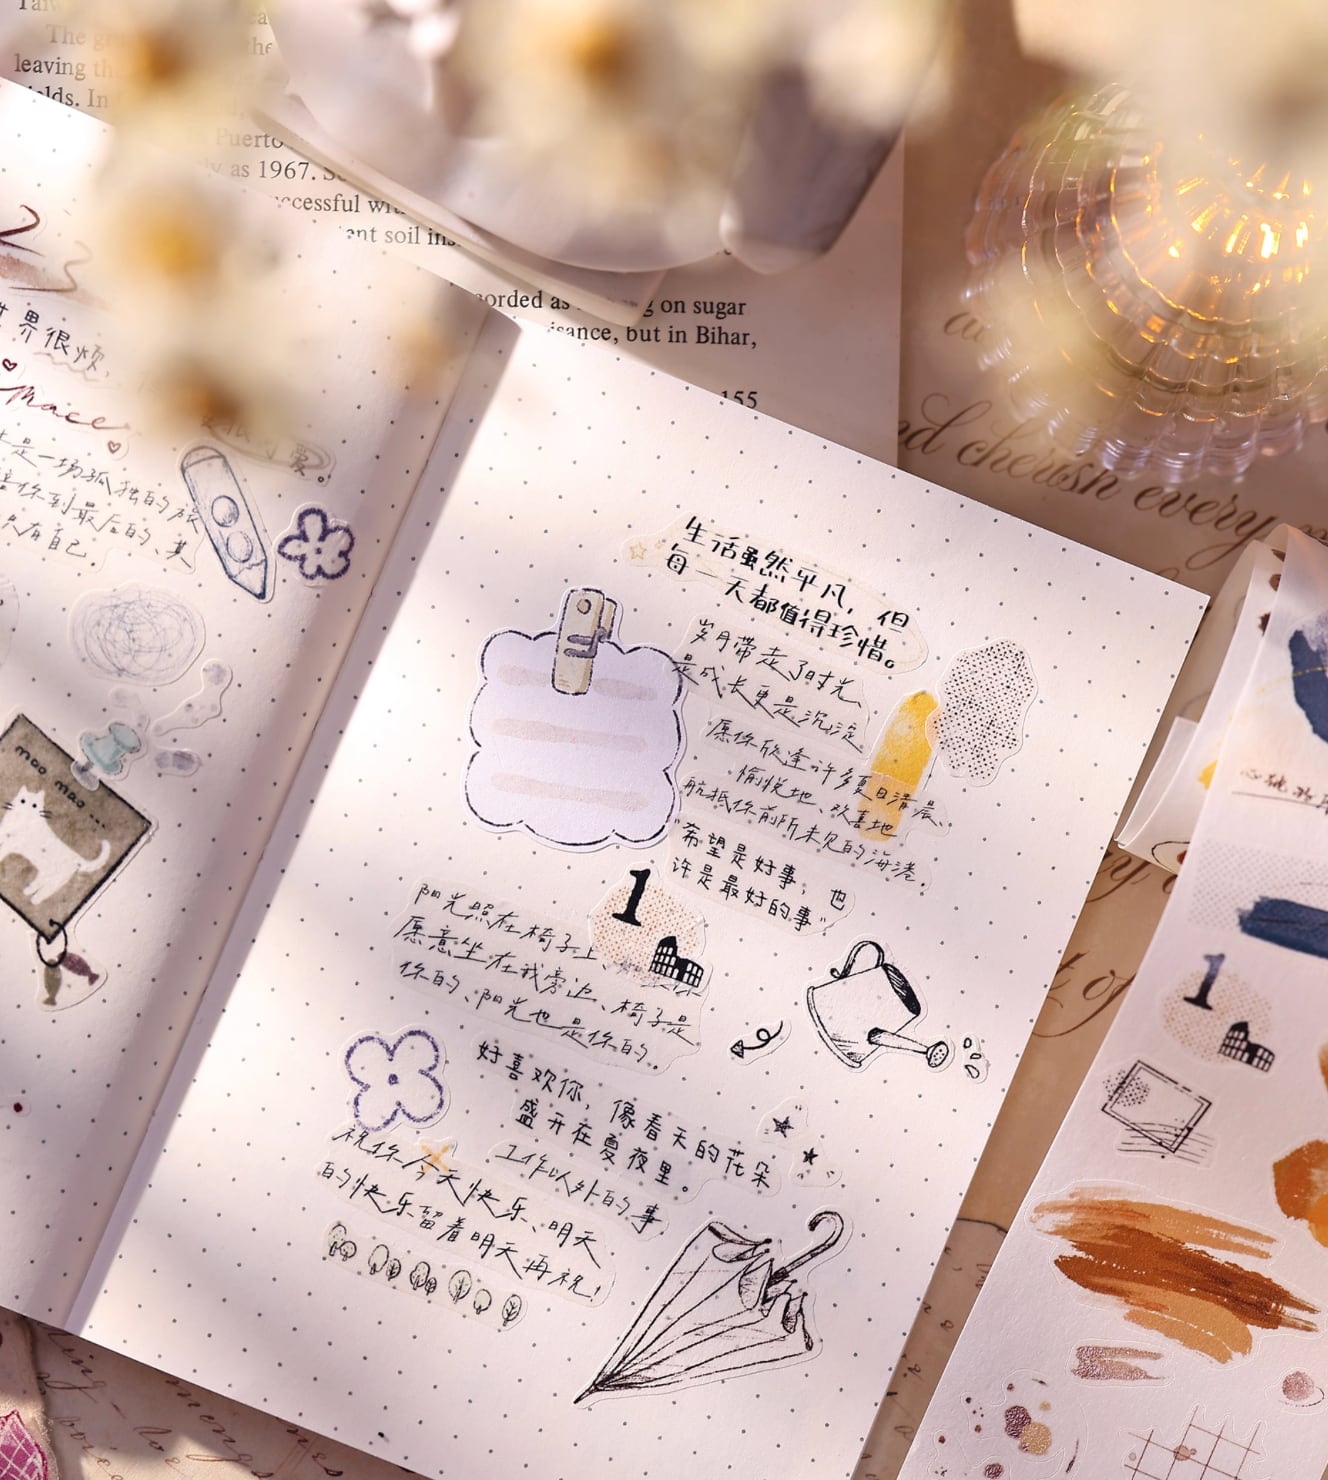 The
leaving th
elds. In
Puerto
as 1967.
ccessful wit
ant soil ins
orded as
g on sugar
isance, but in Bihar,
155
nd cherish every
界很烦,
是一场孤独的旅
你到最后的、其
只有自己.
可爱。
mao mao ...
生活虽然平凡，但
每一天都值得珍惜。
岁月带走了时光、
是成长更是沉淀.
愿你欣逢许多夏日清晨、
愉悦地、欢喜地
航抵你前所未见的海港.
"希望是好事，也
许是最好的事"
1
阳光照在椅子上、
愿意坐在我旁边、椅子是
你的、阳光也是你的.
好喜欢你，像春天的花朵
盛开在夏夜里。
工作以外的事
祝你今天快乐、明天
的快乐留着明天再祝!
1